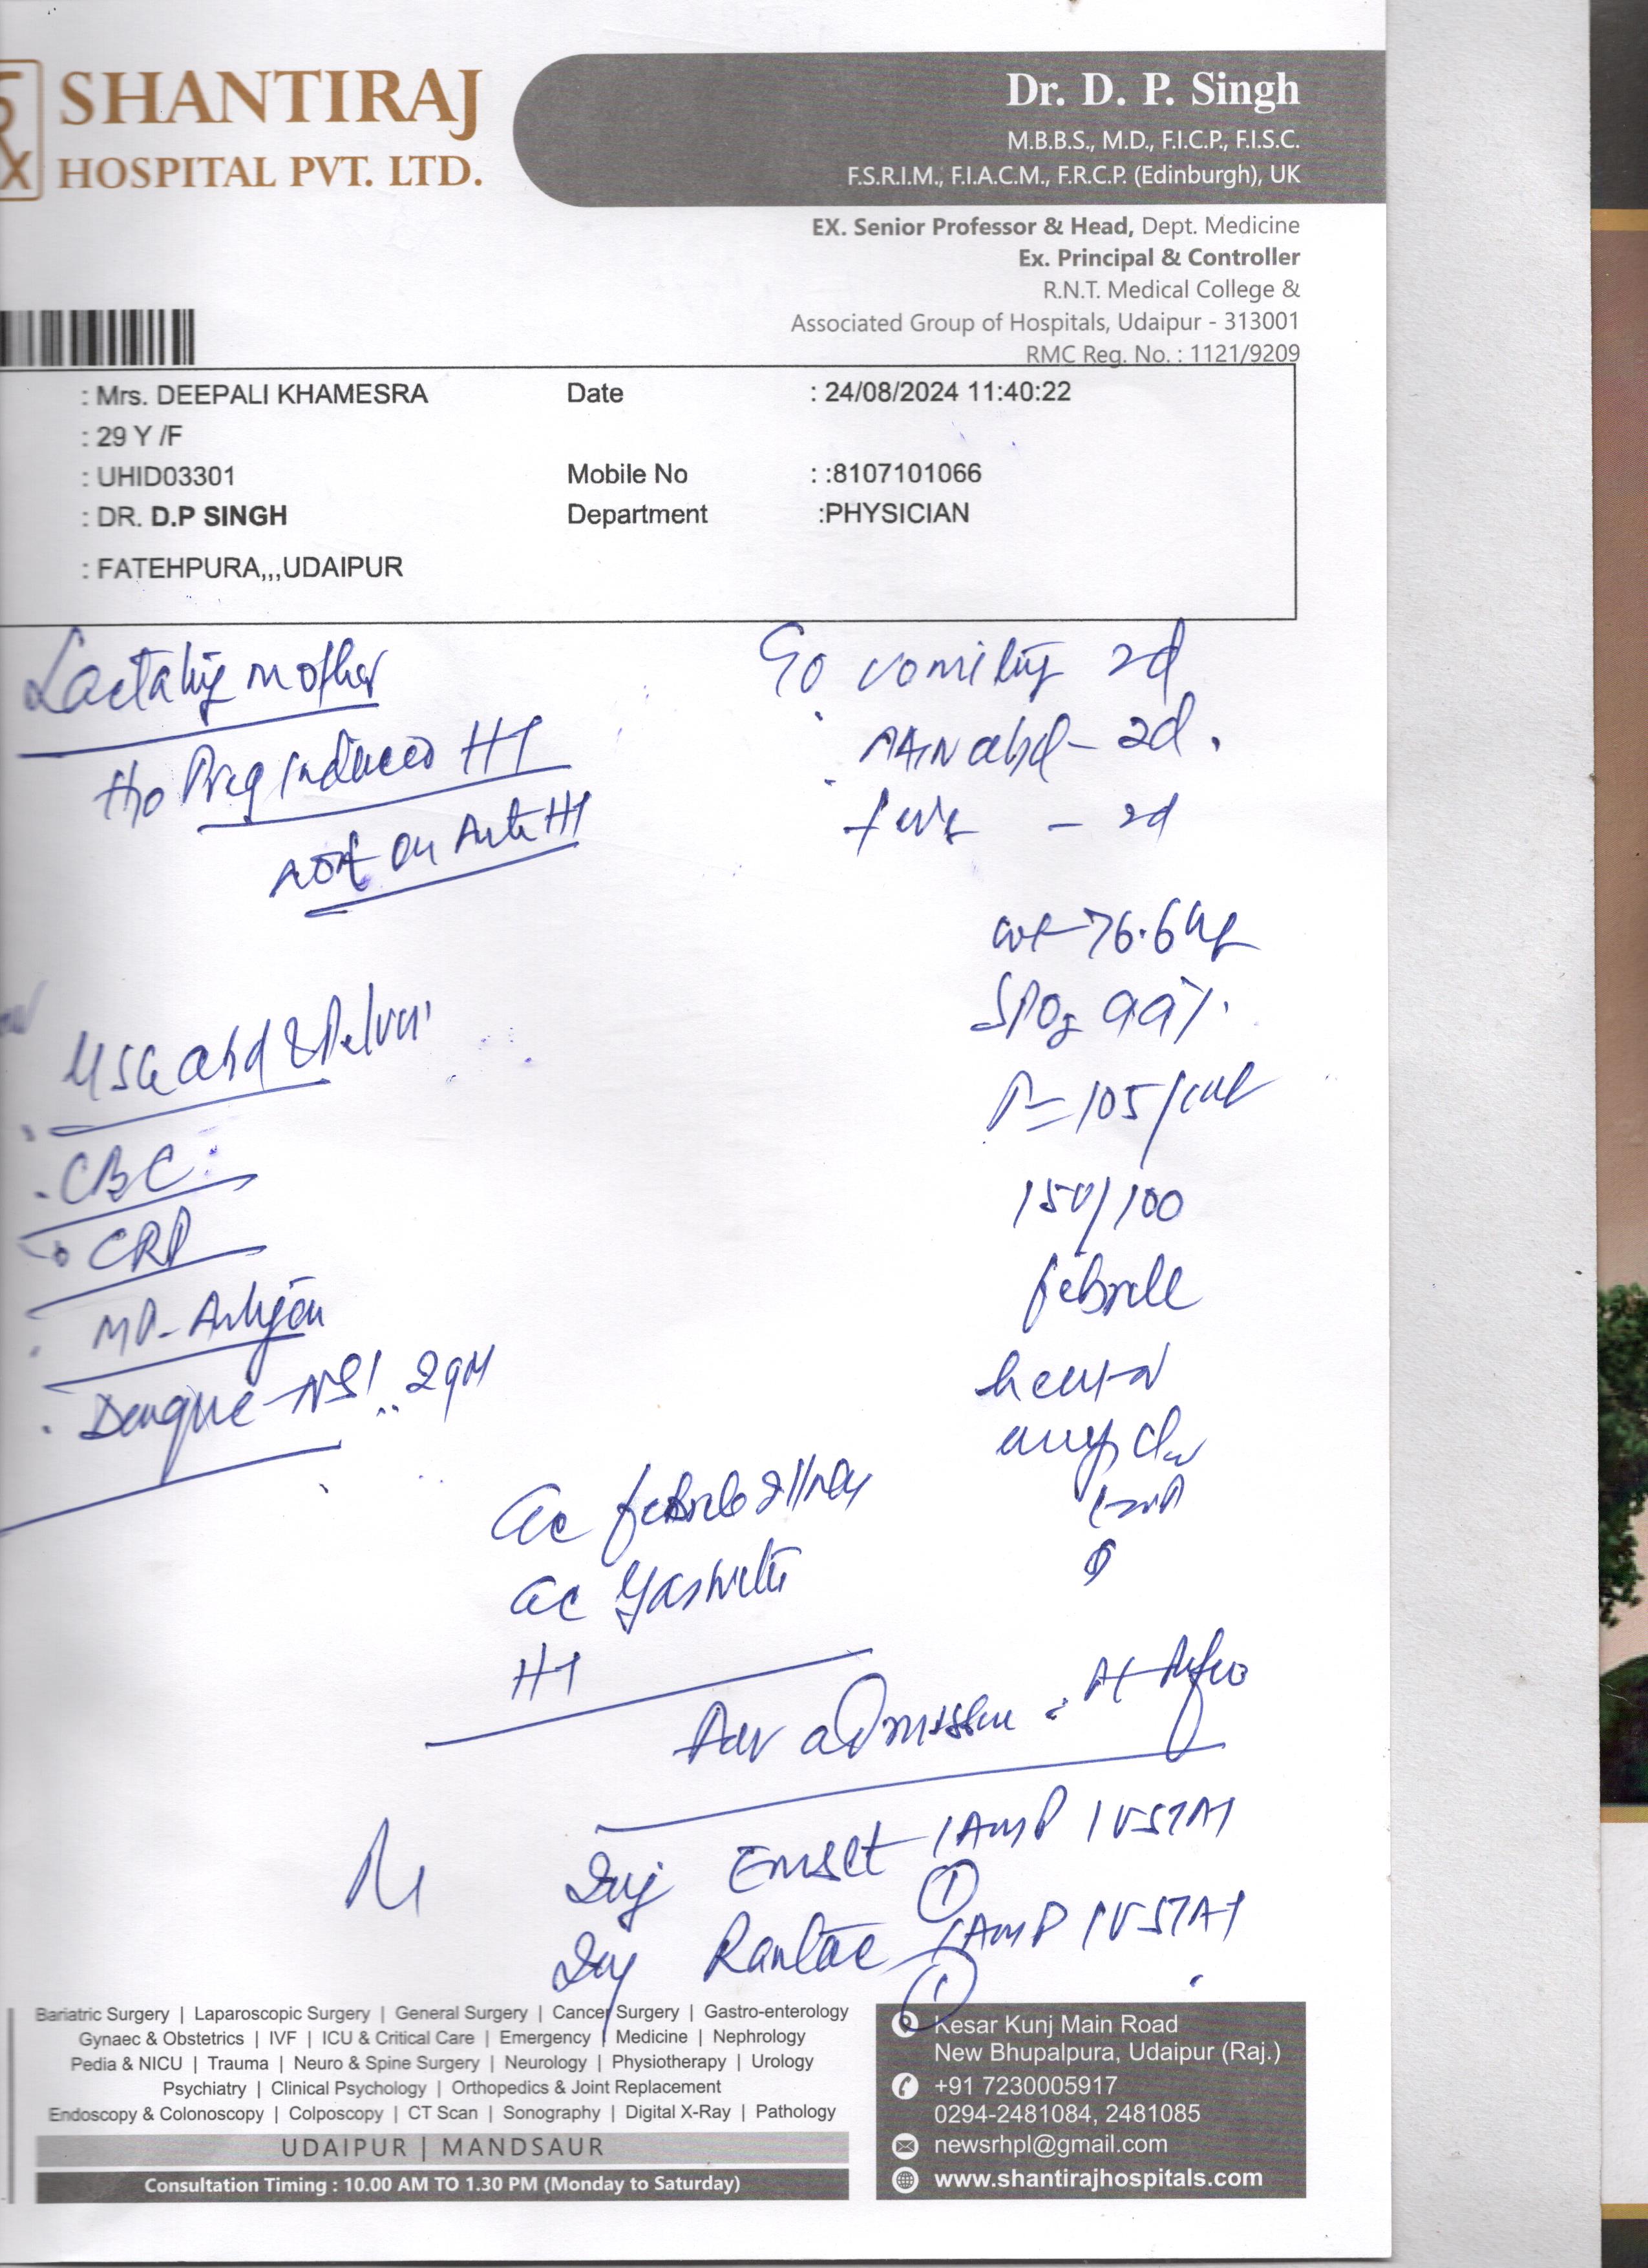 SHANTIRAJ
HOSPITAL PVT. LTD.
Dr. D. P. Singh
M.B.B.S., M.D., F.I.C.P., F.I.S.C.
F.S.R.I.M., F.I.A.C.M., F.R.C.P. (Edinburgh), UK
EX. Senior Professor & Head, Dept. Medicine
Ex. Principal & Controller
R.N.T. Medical College &
Associated Group of Hospitals, Udaipur - 313001
RMC Reg. No. : 1121/9209
: Mrs. DEEPALI KHAMESRA Date : 24/08/2024 11:40:22
: 29 Y /F
: UHID03301 Mobile No : :8107101066
: DR. D.P SINGH Department :PHYSICIAN
: FATEHPURA,,,UDAIPUR
Lactating mother
H/o Preg induced HT
not on Anti HT
C/o vomiting 2d
PAIN abd - 2d.
fever - 2d
wt - 76.6 kg
SPO2 99%
P = 105/mt
150/100
febrile
USG abd & Pelvis
CBC
CRP
MP - Antigen
Dengue - NS1
Ac febrile illness
Ac Gastritis
HT
Adv admission
Inj Emset 1 AMP IV STAT
1
Inj Rantac 1 AMP IV STAT
1
Bariatric Surgery | Laparoscopic Surgery | General Surgery | Cancer Surgery | Gastro-enterology
Gynaec & Obstetrics | IVF | ICU & Critical Care | Emergency | Medicine | Nephrology
Pedia & NICU | Trauma | Neuro & Spine Surgery | Neurology | Physiotherapy | Urology
Psychiatry | Clinical Psychology | Orthopedics & Joint Replacement
Endoscopy & Colonoscopy | Colposcopy | CT Scan | Sonography | Digital X-Ray | Pathology
UDAIPUR | MANDSAUR
Consultation Timing : 10.00 AM TO 1.30 PM (Monday to Saturday)
Kesar Kunj Main Road
New Bhupalpura, Udaipur (Raj.)
+91 7230005917
0294-2481084, 2481085
newsrhpl@gmail.com
www.shantirajhospitals.com